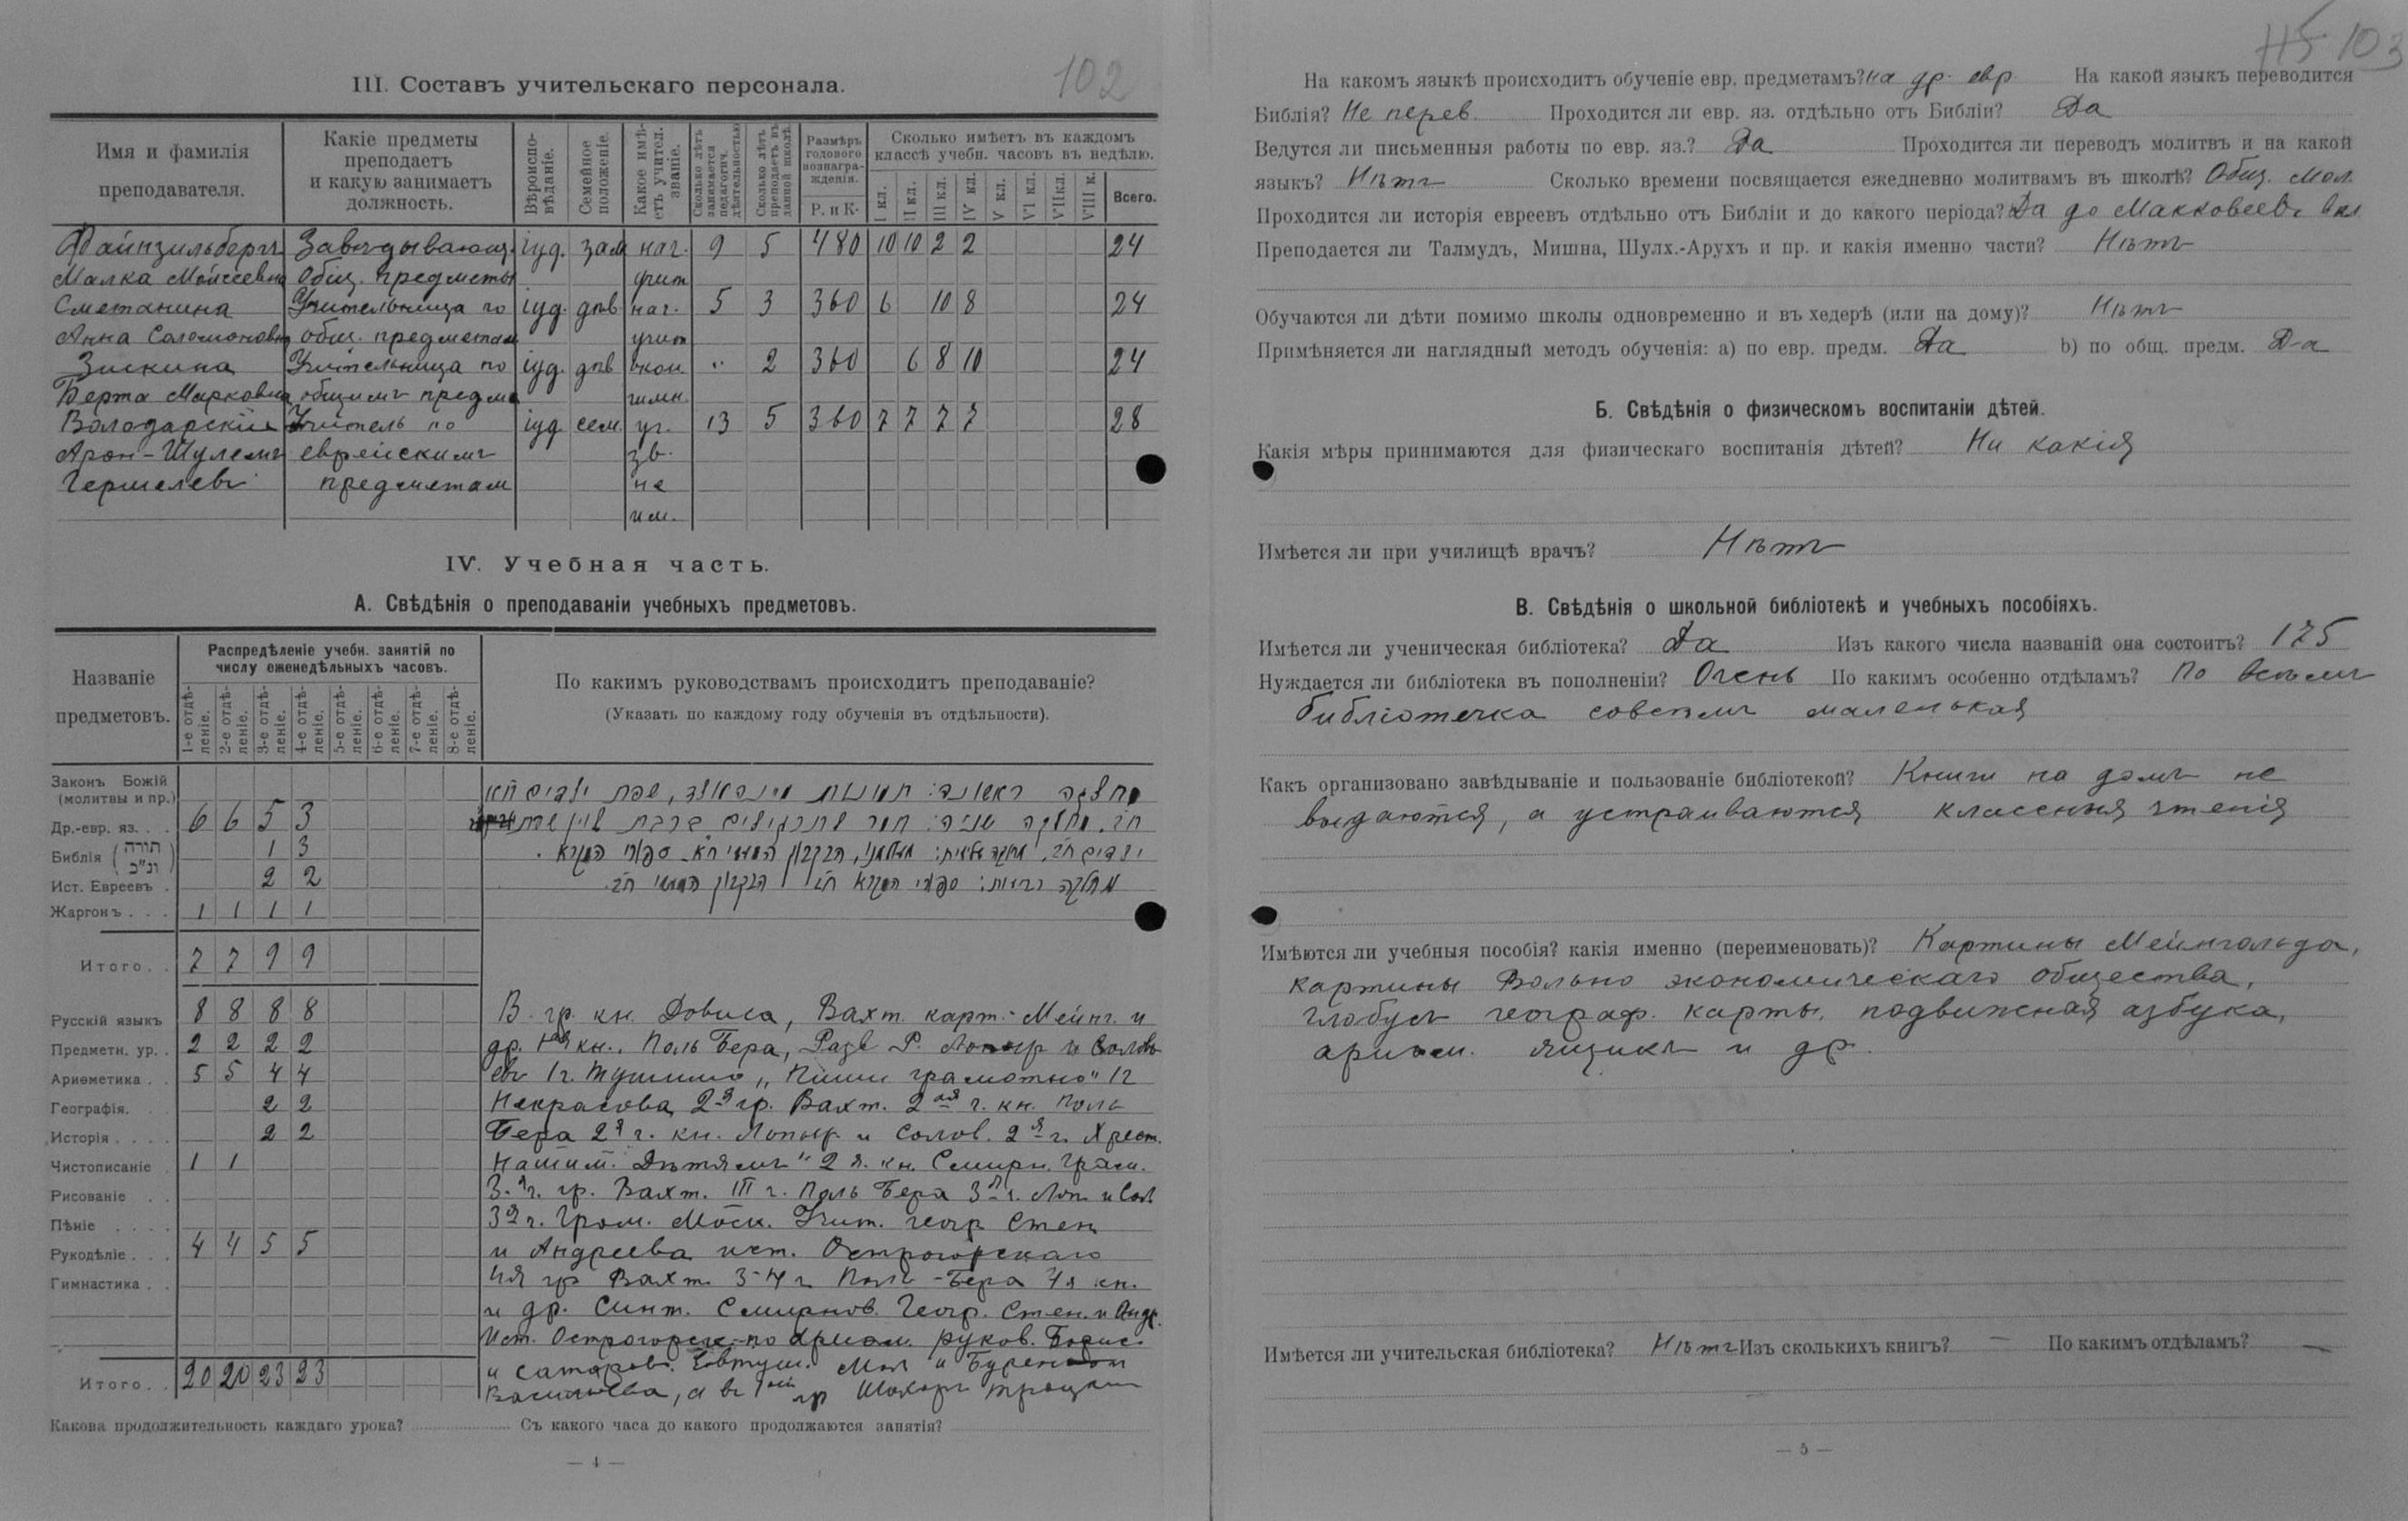 102
III. Составъ учительскаго персонала.
Имя и фамилія преподавателя.
Какіе предметы преподаетъ и какую занимаетъ должность.
Вѣроисповѣданіе.
Семейное положеніе.
Какое имѣетъ учител. званіе.
Сколько лѣтъ занимается педагогич. дѣятельностью
Сколько лѣтъ преподаетъ въ данной школѣ.
Размѣръ годового вознагражденія.
Р. и К.
Сколько имѣетъ въ каждомъ классѣ учебн. часовъ въ недѣлю.
I кл. II кл. III кл. IV кл. V кл. VI кл. VII кл. VIII к. Всего.
Файнзильбергъ Завѣдывающ. іуд. зам наг. 9 5 480 10 10 2 2 24
Малка Мойсеевна Общ. предметы учит
Сметанина Учительница по іуд. дѣв. наг. 5 3 360 6 10 8 24
Анна Соломоновна общ. предметам учит
Зискина Учительница по іуд. дѣв окон. " 2 360 6 8 10 24
Берта Марковна общимъ предме гимн.
Володарскій Учитель по іуд сем. уч. 13 5 360 7 7 7 7 28
Арон-Шулемъ еврейскимъ зв.
Гершелевъ предметам не
им.
IV. Учебная часть.
А. Свѣдѣнія о преподаваніи учебныхъ предметовъ.
Названіе предметовъ.
Распредѣленіе учебн. занятій по числу еженедѣльныхъ часовъ.
1-е отдѣленіе. 2-е отдѣленіе. 3-е отдѣленіе. 4-е отдѣленіе. 5-е отдѣленіе. 6-е отдѣленіе. 7-е отдѣленіе. 8-е отдѣленіе.
По какимъ руководствамъ происходитъ преподаваніе?
(Указать по каждому году обученія въ отдѣльности).
Законъ Божій
(молитвы и пр.)
Др.-евр. яз. . . 6 6 5 3
Библія (תורה ונ"כ) 1 3
Ист. Евреевъ . 2 2
Жаргонъ . . . 1 1 1 1
Итого. . 7 7 9 9
Русскій языкъ 8 8 8 8
Предметн. ур. . 2 2 2 2
Ариѳметика . . 5 5 4 4
Географія. . 2 2
Исторія . . . . 2 2
Чистописаніе . 1 1
Рисованіе . .
Пѣніе . . . .
Рукодѣліе . . . 4 4 5 5
Гимнастика . .
Итого. . 20 20 23 23
מחלקה ראשונה: שפת ילדים ח"א
ח"ב. מחלקה שניה:
ילדים ח"ב. ספורי המקרא
מחלקה רביעית: ספורי המקרא ח"ב
В. гр. кн. Вахт. карт. Мейнг. и
др. 1ая кн. Поль Бера, Разв Р. и Соловь
евъ 1 г. „Пиши грамотно" 1 г
Некрасова 2я гр. Вахт. 2ая г. кн. Поль
Бера 2я г. кн. и Солов. 2я г. Хрест.
Нашим. Дѣтямъ" 2 я. кн. Смирн. Грам.
3я г. гр. Вахт. III г. Поль Бера 3я г. и Сол
3я г. Грам. Моск. Учит. геогр Стен
и Андреева ист. Острогорскаго
4я гр Вахт. 3-4 г Поль-Бера 4я кн.
и др. Синт. Смирнов. Геогр. Стен. и Андр.
Ист. Острогорск. по Ариѳм. руков.
и Евтуш. и Буренин
Васильева, а въ гр Шохоръ Троцкаго
Какова продолжительность каждаго урока? Съ какого часа до какого продолжаются занятія?
— 4 —
103
На какомъ языкѣ происходитъ обученіе евр. предметамъ? на др. евр На какой языкъ переводится
Библія? Не перев. Проходится ли евр. яз. отдѣльно отъ Библіи? Да
Ведутся ли письменныя работы по евр. яз.? Да Проходится ли переводъ молитвъ и на какой
языкъ? Нѣтъ Сколько времени посвящается ежедневно молитвамъ въ школѣ? Общ. мол.
Проходится ли исторія евреевъ отдѣльно отъ Библіи и до какого періода? Да до Макковеевъ вкл
Преподается ли Талмудъ, Мишна, Шулх.-Арухъ и пр. и какія именно части? Нѣтъ
Обучаются ли дѣти помимо школы одновременно и въ хедерѣ (или на дому)? Нѣтъ
Примѣняется ли наглядный методъ обученія: а) по евр. предм. Да b) по общ. предм. Да
Б. Свѣдѣнія о физическомъ воспитаніи дѣтей.
Какія мѣры принимаются для физическаго воспитанія дѣтей? Ни какія
Имѣется ли при училищѣ врачъ? Нѣтъ
В. Свѣдѣнія о школьной библіотекѣ и учебныхъ пособіяхъ.
Имѣется ли ученическая библіотека? Да Изъ какого числа названій она состоитъ? 175
Нуждается ли библіотека въ пополненіи? Очень По какимъ особенно отдѣламъ? По всѣмъ
библіотечка совсѣмъ маленькая
Какъ организовано завѣдываніе и пользованіе библіотекой? Книги на домъ не
выдаются, а устраиваются классныя чтенія
Имѣются ли учебныя пособія? какія именно (переименовать)? Картины Мейнгольда,
картины Вольно экономическаго общества,
глобусъ географ. карты, подвижная азбука,
ариѳм. ящикъ и др.
Имѣется ли учительская библіотека? Нѣтъ Изъ сколькихъ книгъ? — По какимъ отдѣламъ? —
— 5 —